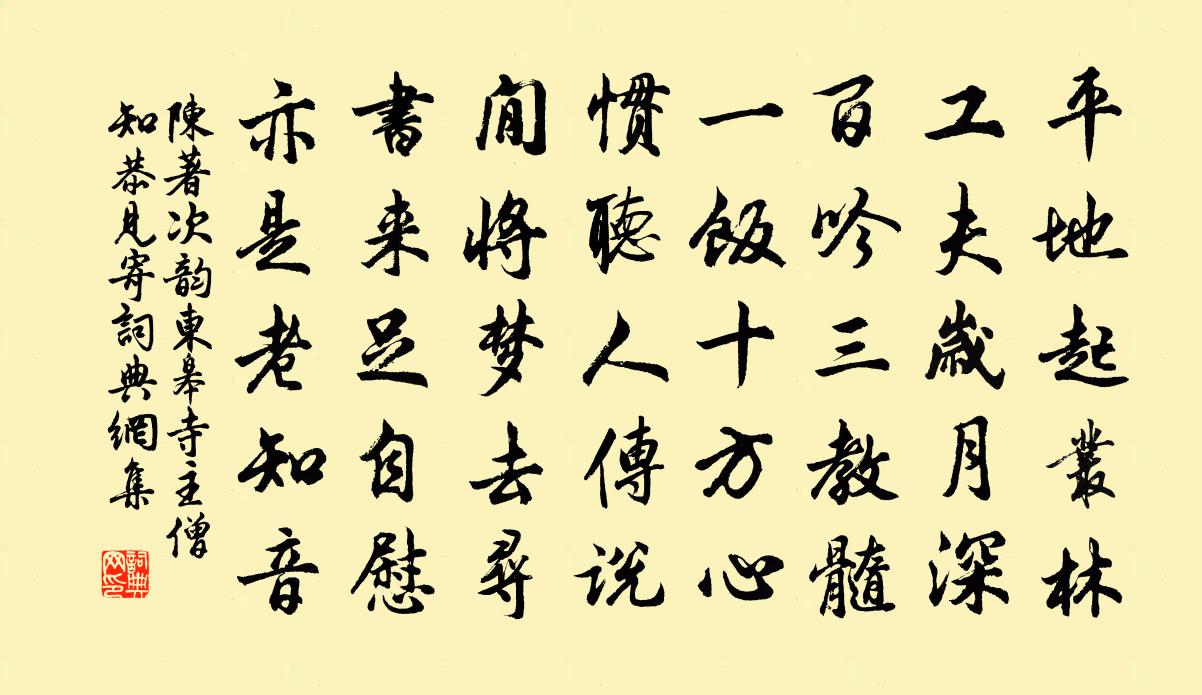 平地起叢林
工夫歲月深
百吟三教髓
一飯十方心
慣聽人傳說
閒將梦去尋
書来足自慰
亦是老知音
陳著次韵東皋寺主僧
知恭見寄詞典網集
詞典网印